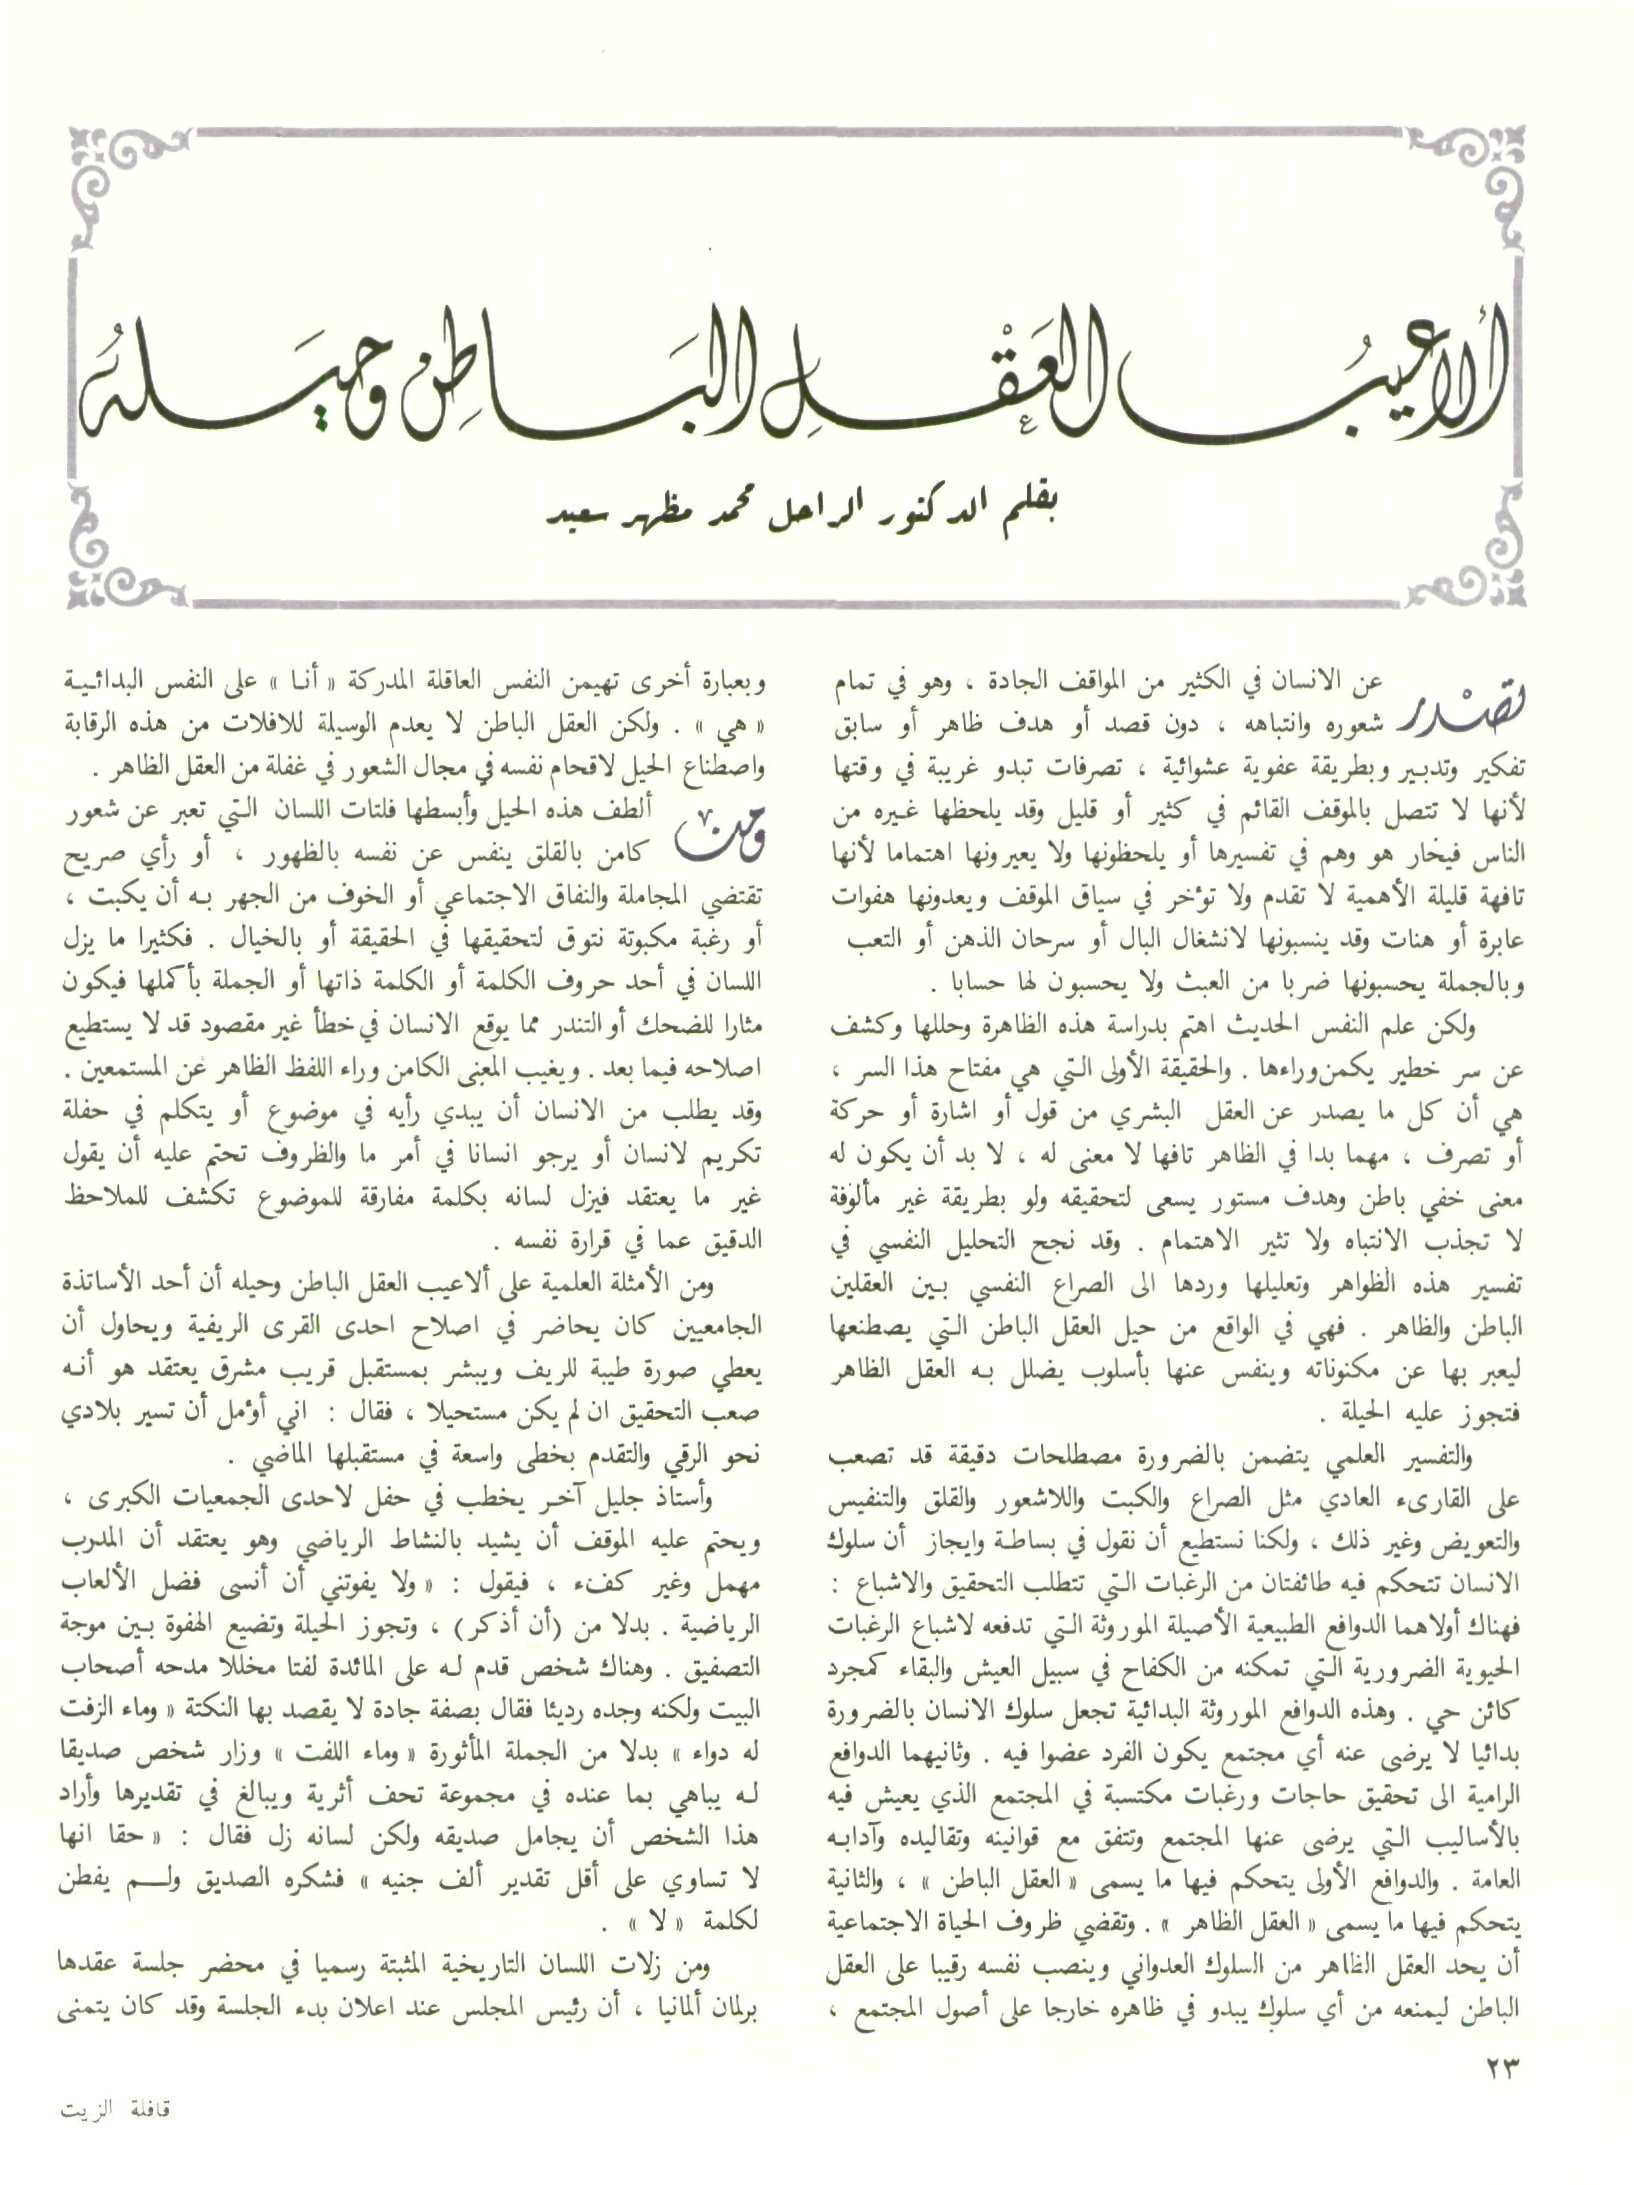 ألاعيبُ العَقْلِ البَاطِن وحيَلهُ
بقلم الدكتور الراحل محمد مظهر سعيد
تصْدر عن الانسان في الكثير من المواقف الجادة ، وهو في تمام
شعوره وانتباهه ، دون قصد أو هدف ظاهر أو سابق
تفكير وتدبير وبطريقة عفوية عشوائية ، تصرفات تبدو غريبة في وقتها
لأنها لا تتصل بالموقف القائم في كثير أو قليل وقد يلحظها غيره من
الناس فيحار هو وهم في تفسيرها أو يلحظونها ولا يعيرونها اهتماما لأنها
تافهة قليلة الأهمية لا تقدم ولا تؤخر في سياق الموقف ويعدونها هفوات
عابرة أو هنات وقد ينسبونها لانشغال البال أو سرحان الذهن أو التعب
وبالجملة يحسبونها ضربا من العبث ولا يحسبون لها حسابا .
ولكن علم النفس الحديث اهتم بدراسة هذه الظاهرة وحللها وكشف
عن سر خطير يكمن وراءها . والحقيقة الأولى التي هي مفتاح هذا السر ،
هي أن كل ما يصدر عن العقل البشري من قول أو اشارة أو حركة
أو تصرف ، مهما بدا في الظاهر تافها لا معنى له ، لا بد أن يكون له
معنى خفي باطن وهدف مستور يسعى لتحقيقه ولو بطريقة غير مألوفة
لا تجذب الانتباه ولا تثير الاهتمام . وقد نجح التحليل النفسي في
تفسير هذه الظواهر وتعليلها وردها الى الصراع النفسي بين العقلين
الباطن والظاهر . فهي في الواقع من حيل العقل الباطن التي يصطنعها
ليعبر بها عن مكنوناته وينفس عنها بأسلوب يضلل به العقل الظاهر
فتجوز عليه الحيلة .
والتفسير العلمي يتضمن بالضرورة مصطلحات دقيقة قد تصعب
على القارىء العادي مثل الصراع والكبت واللاشعور والقلق والتنفيس
والتعويض وغير ذلك ، ولكنا نستطيع أن نقول في بساطة وايجاز أن سلوك
الانسان تتحكم فيه طائفتان من الرغبات التي تتطلب التحقيق والاشباع :
فهناك أولاهما الدوافع الطبيعية الأصيلة الموروثة التي تدفعه لاشباع الرغبات
الحيوية الضرورية التي تمكنه من الكفاح في سبيل العيش والبقاء كمجرد
كائن حي . وهذه الدوافع الموروثة البدائية تجعل سلوك الانسان بالضرورة
بدائيا لا يرضى عنه أي مجتمع يكون الفرد عضوا فيه . وثانيهما الدوافع
الرامية الى تحقيق حاجات ورغبات مكتسبة في المجتمع الذي يعيش فيه
بالأساليب التي يرضى عنها المجتمع وتتفق مع قوانينه وتقاليده وآدابه
العامة . والدوافع الأولى يتحكم فيها ما يسمى « العقل الباطن » ، والثانية
يتحكم فيها ما يسمى « العقل الظاهر » . وتقضي ظروف الحياة الاجتماعية
أن يحد العقل الظاهر من السلوك العدواني وينصب نفسه رقيبا على العقل
الباطن ليمنعه من أي سلوك يبدو في ظاهره خارجا على أصول المجتمع ،
وبعبارة أخرى تهيمن النفس العاقلة المدركة « أنا » على النفس البدائية
« هي » . ولكن العقل الباطن لا يعدم الوسيلة للافلات من هذه الرقابة
واصطناع الحيل لاقحام نفسه في مجال الشعور في غفلة من العقل الظاهر .
ومن ألطف هذه الحيل وأبسطها فلتات اللسان التي تعبر عن شعور
كامن بالقلق ينفس عن نفسه بالظهور ، أو رأي صريح
تقتضي المجاملة والنفاق الاجتماعي أو الخوف من الجهر به أن يكبت ،
أو رغبة مكبوتة نتوق لتحقيقها في الحقيقة أو بالخيال . فكثيرا ما يزل
اللسان في أحد حروف الكلمة أو الكلمة ذاتها أو الجملة بأكملها فيكون
مثارا للضحك أو التندر مما يوقع الانسان في خطأ غير مقصود قد لا يستطيع
اصلاحه فيما بعد . ويغيب المعنى الكامن وراء اللفظ الظاهر عن المستمعين .
وقد يطلب من الانسان أن يبدي رأيه في موضوع أو يتكلم في حفلة
تكريم لانسان أو يرجو انسانا في أمر ما والظروف تحتم عليه أن يقول
غير ما يعتقد فيزل لسانه بكلمة مفارقة للموضوع تكشف للملاحظ
الدقيق عما في قرارة نفسه .
ومن الأمثلة العلمية على ألاعيب العقل الباطن وحيله أن أحد الأساتذة
الجامعيين كان يحاضر في اصلاح احدى القرى الريفية ويحاول أن
يعطي صورة طيبة للريف ويبشر بمستقبل قريب مشرق يعتقد هو أنه
صعب التحقيق ان لم يكن مستحيلا ، فقال : اني أؤمل أن تسير بلادي
نحو الرقي والتقدم بخطى واسعة في مستقبلها الماضي .
وأستاذ جليل آخر يخطب في حفل لاحدى الجمعيات الكبرى ،
ويحتم عليه الموقف أن يشيد بالنشاط الرياضي وهو يعتقد أن المدرب
مهمل وغير كفء ، فيقول : « ولا يفوتني أن أنسى فضل الألعاب
الرياضية . بدلا من (أن أذكر) ، وتجوز الحيلة وتضيع الهفوة بين موجة
التصفيق . وهناك شخص قدم له على المائدة لفتا مخللا مدحه أصحاب
البيت ولكنه وجده رديئا فقال بصفة جادة لا يقصد بها النكتة « وماء الزفت
له دواء » بدلا من الجملة المأثورة « وماء اللفت » وزار شخص صديقا
له يباهي بما عنده في مجموعة تحف أثرية ويبالغ في تقديرها وأراد
هذا الشخص أن يجامل صديقه ولكن لسانه زل فقال : « حقا انها
لا تساوي على أقل تقدير ألف جنيه » فشكره الصديق ولم يفطن
لكلمة « لا » .
ومن زلات اللسان التاريخية المثبتة رسميا في محضر جلسة عقدها
برلمان ألمانيا ، أن رئيس المجلس عند اعلان بدء الجلسة وقد كان يتمنى
٢٣
قافلة الزيت